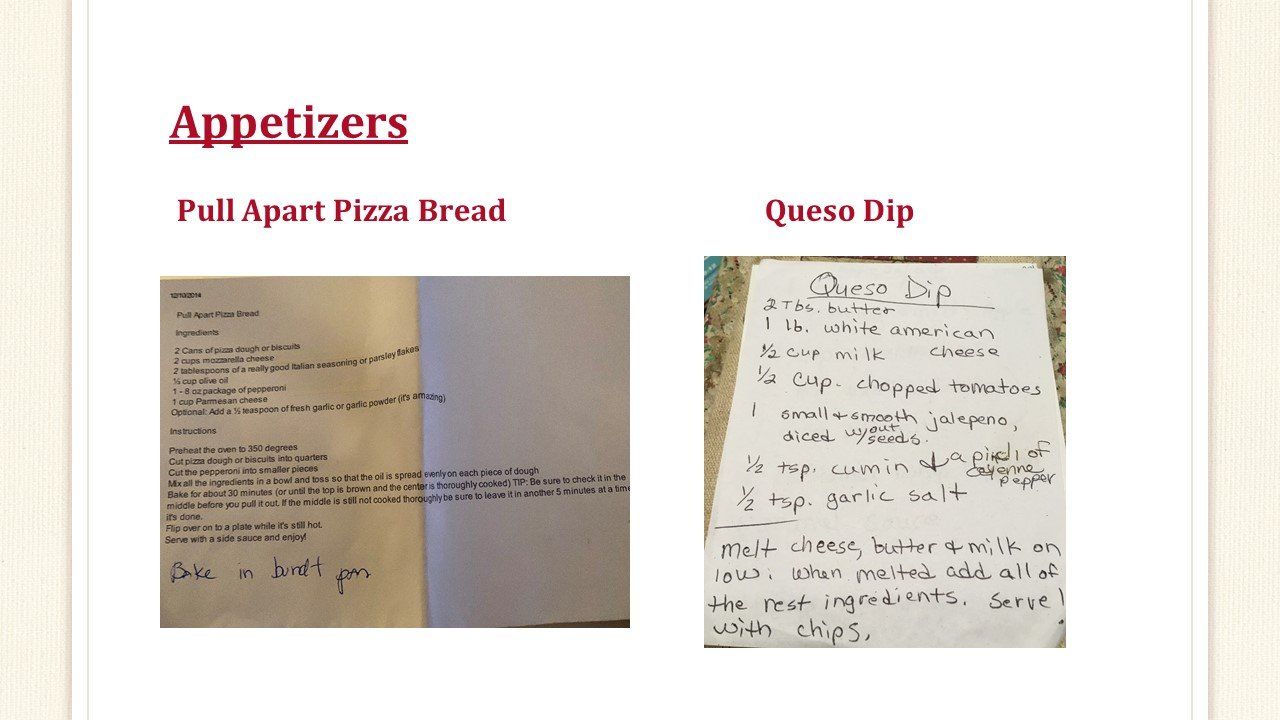 Appetizers
Pull Apart Pizza Bread
12/10/2014
Pull Apart Pizza Bread
Ingredients
2 Cans of pizza dough or biscuits
2 cups mozzarella cheese
2 tablespoons of a really good Italian seasoning or parsley flakes
⅓ cup olive oil
1 - 8 oz package of pepperoni
1 cup Parmesan cheese
Optional: Add a ½ teaspoon of fresh garlic or garlic powder (it's amazing)
Instructions
Preheat the oven to 350 degrees
Cut pizza dough or biscuits into quarters
Cut the pepperoni into smaller pieces
Mix all the ingredients in a bowl and toss so that the oil is spread evenly on each piece of dough
Bake for about 30 minutes (or until the top is brown and the center is thoroughly cooked) TIP: Be sure to check it in the
middle before you pull it out. If the middle is still not cooked thoroughly be sure to leave it in another 5 minutes at a time
it's done.
Flip over on to a plate while it's still hot.
Serve with a side sauce and enjoy!
Bake in bundt pan
Queso Dip
Queso Dip
2 Tbs. butter
1 lb. white american
½ cup milk cheese
½ cup. chopped tomatoes
1 small & smooth jalepeno,
diced w/out seeds.
½ tsp. cumin & a pinch of
cayenne
pepper
½ tsp. garlic salt
melt cheese, butter & milk on
low. When melted add all of
the rest ingredients. Serve
with chips.